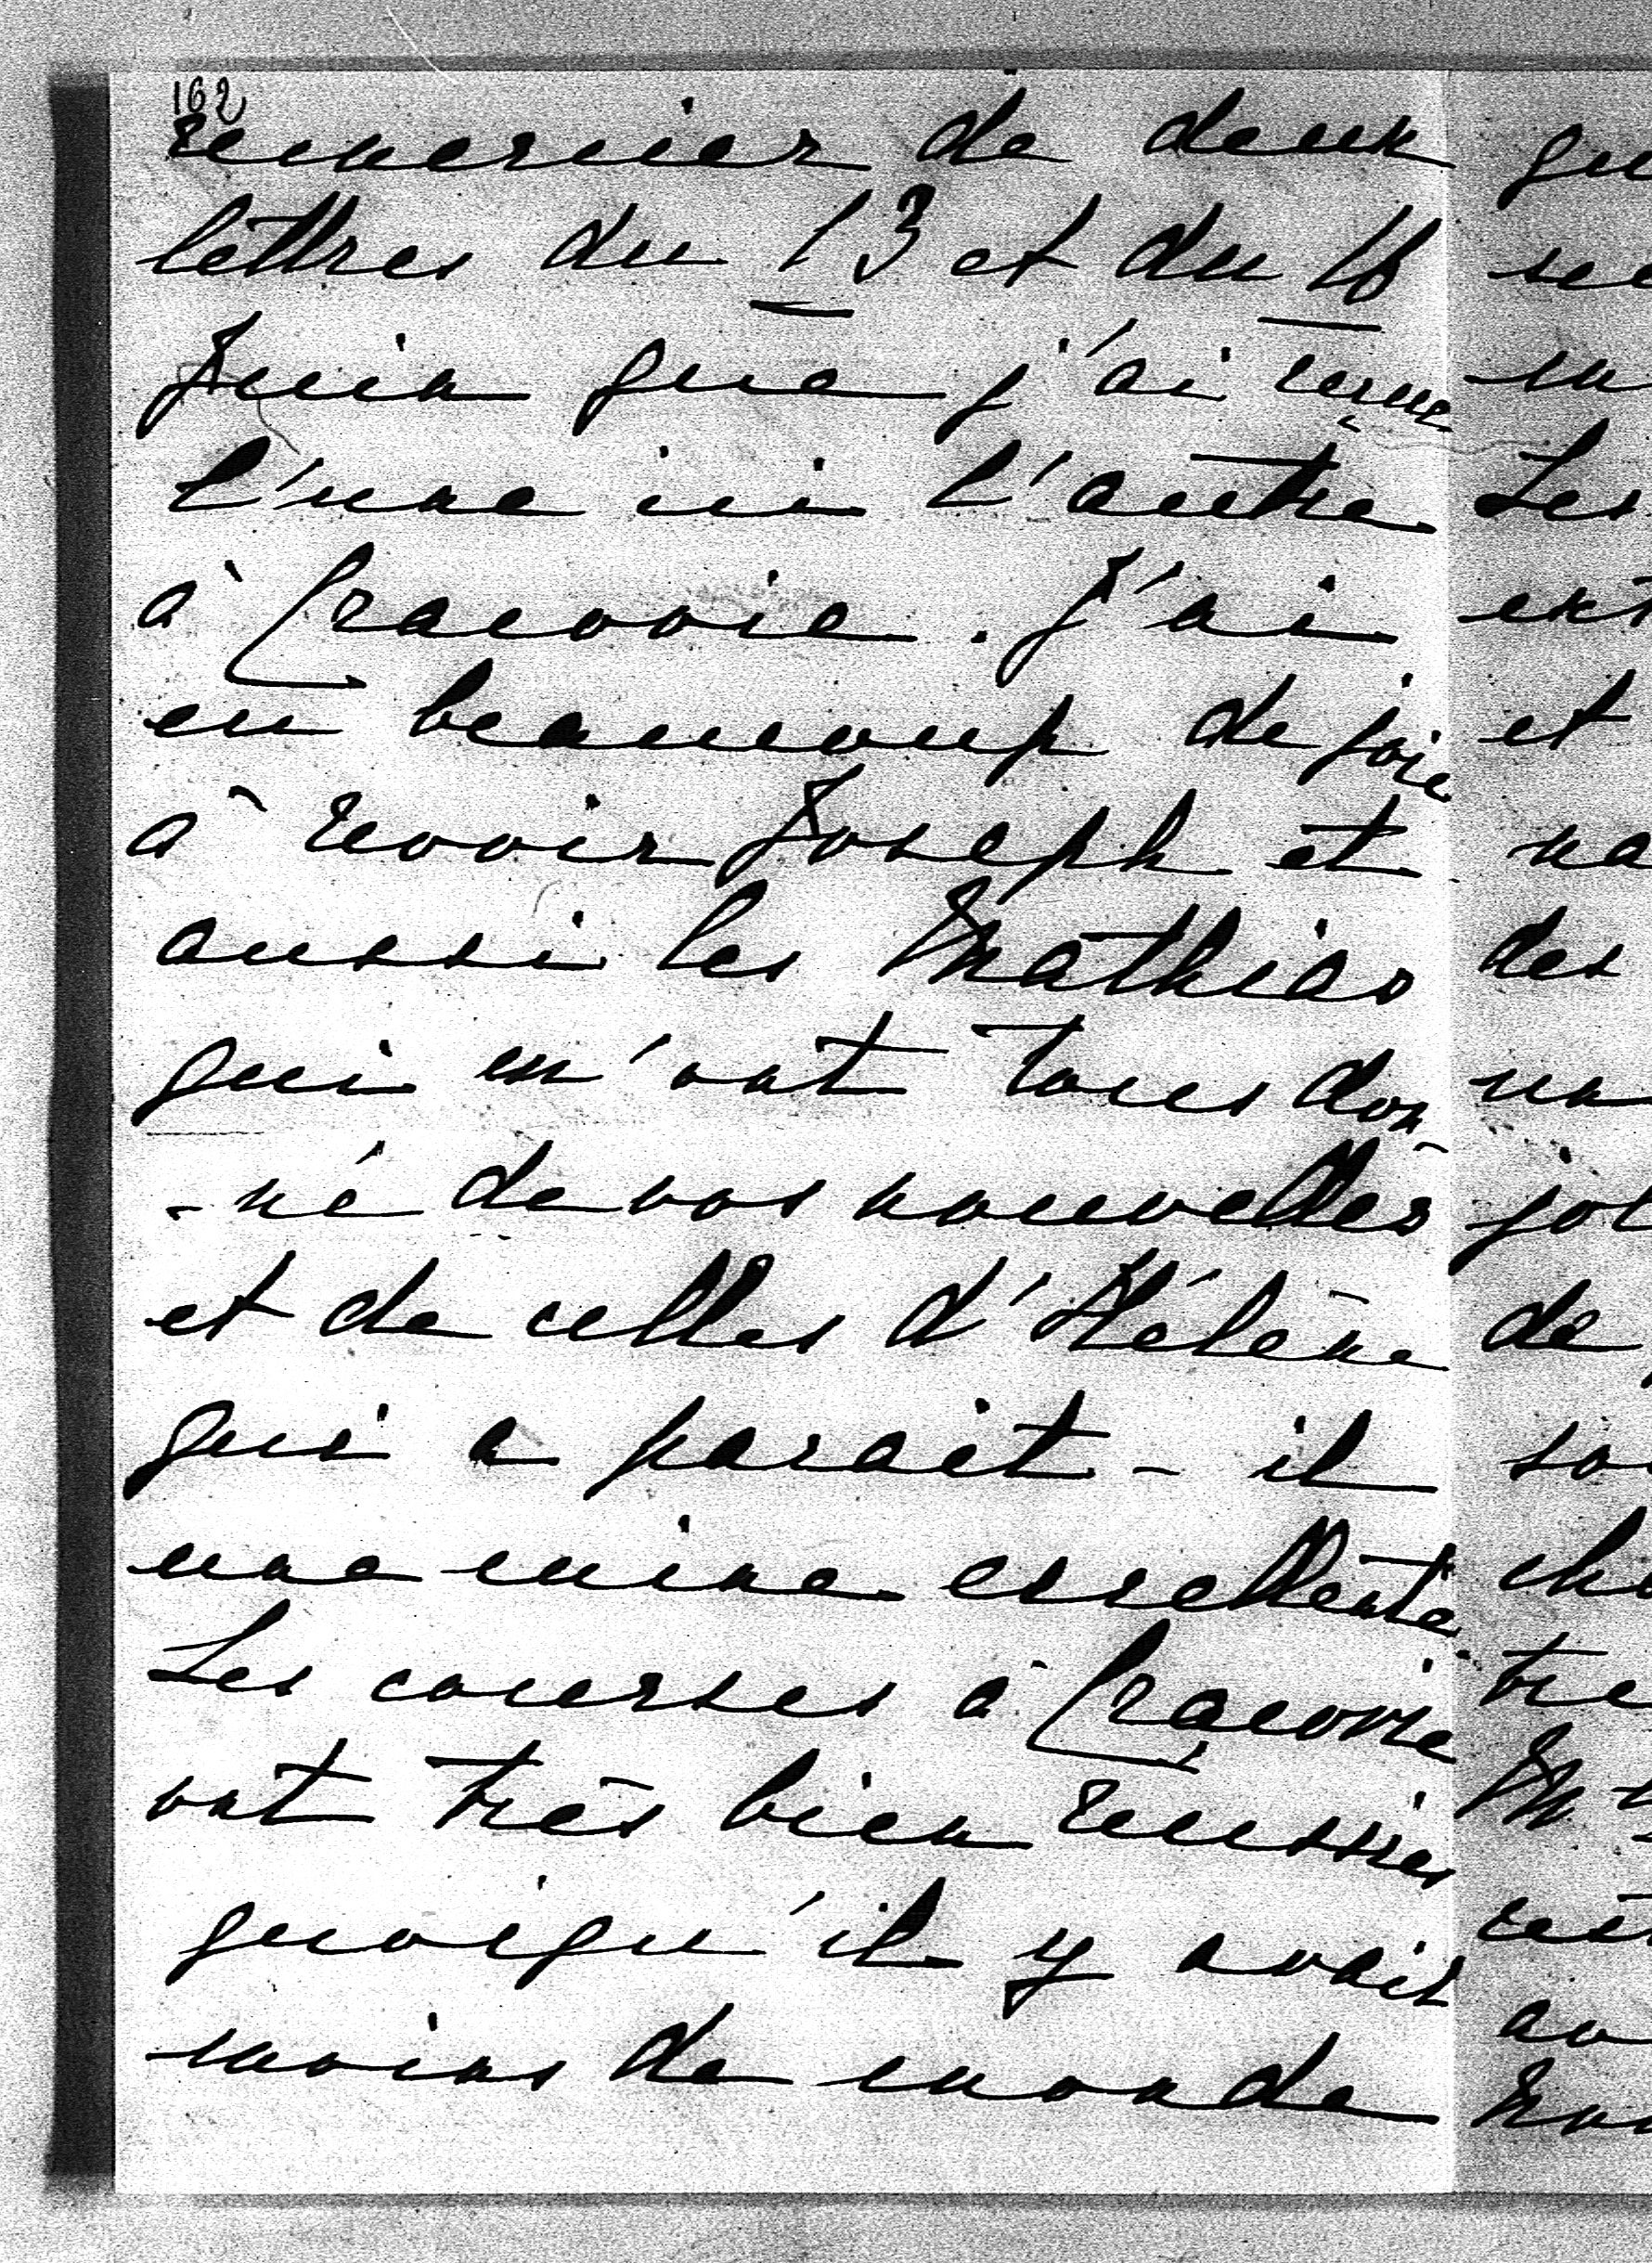 162
remercier de deux
lettres du 13 et du 16
Juin que j'ai reçue
l'une ici l'autre
à Cracovie. J'ai
eu beaucoup de joie
à revoir Joseph et
aussi les Mathias
qui m'ont tous don
-né de vos nouvelles
et de celles d'Hélène
qui a parait-il
une mine excellente.
Les courses à Cracovie
ont très bien reussies
quoiqu'il y avait
moins de monde
Les
et
des
de